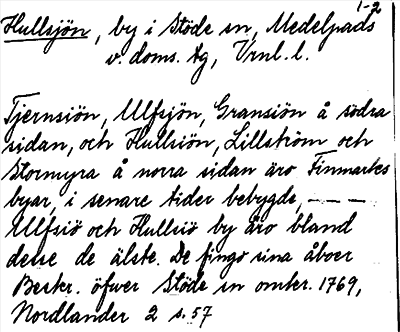 1-2
Hullsjön, by i Stöde sn, Medelpads
v. doms. tg, Vrnl. l.
Tjernsiön, Ulfsjön, Gransiön å södra
sidan, och Hullsiön, Lillström och
Stormyra å norra sidan äro Finmarkes
byar, i senare tider bebygde, — — —
Ulfsiö och Hullsiö by äro bland
desse de älste. De fingo sina åboer
Beskr. öfwer Stöde sn omkr. 1769,
Nordlander 2 s. 57